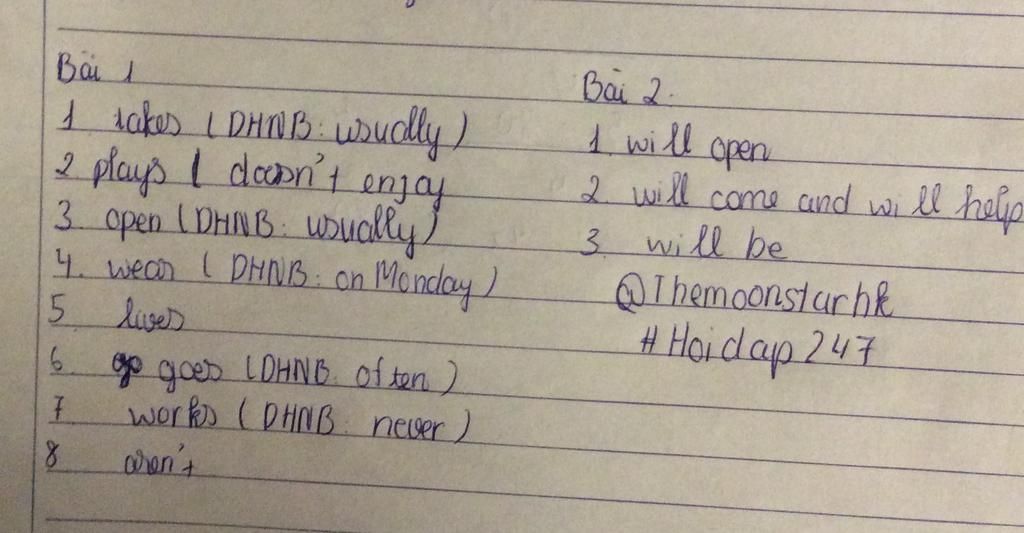 Bài 1
1 takes (DHNB: usually)
2 plays / doesn't enjoy
3. open (DHNB: usually)
4. wear (DHNB: on Monday)
5 lives
6. goes (DHNB: often)
7 works (DHNB: never)
8 aren't
Bài 2.
1 will open
2 will come and will help
3. will be
@Themoonstarhk
#Hoidap247